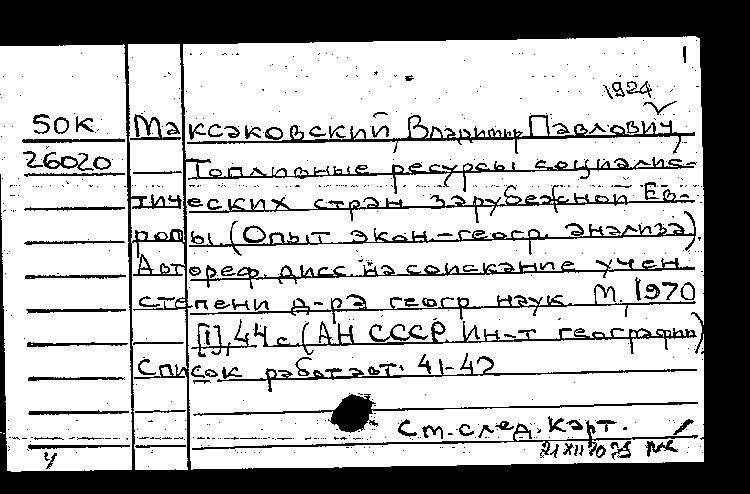 1
1924
50К Максаковский, Владимир Павлович,
26020 Топливные ресурсы социалис-
тических стран зарубежной Ев-
ропы. (Опыт экон.-геогр. анализа).
Автореф. дисс. на соискание учен.
степени д-ра геогр. наук. М., 1970
[1], 44 с. (АН СССР. Ин-т географии)
Список работ авт.: 41-42
См. след. карт.
21 XII 70